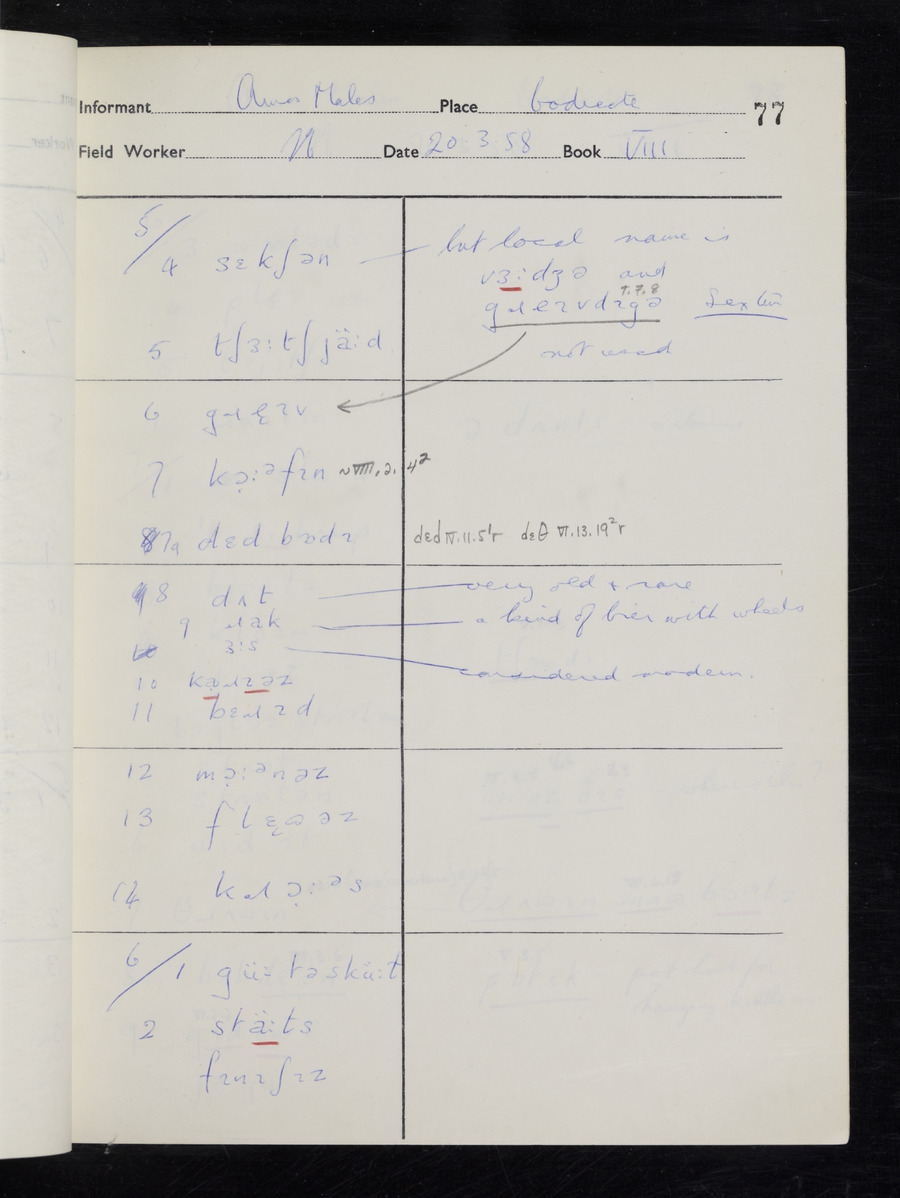 Informant Amos Males Place Bodicote 77
Field Worker N Date 20.3.58 Book VIII
5/
4 sɛkʃən but local name is
vɜ:dʒə and
↑.7.8
gɹeɪvdɪgə Sexton
5 tʃɜ:tʃjä:d not used
6 gɹe̞ɪv
7 kɔ̣:əfɪn ~VIII.2.4²
7a dɛd bɒdɪ dɛd IV.11.5¹r dɛθ VI.13.19²r
8 dʌt very old & rare
9 ɹak a kind of bier with wheels
ɜ:s considered modern.
10 kạɹɪəz
11 bɛɹɪd
12 mɔ̣:ənəz
13 flɛ̞ʊəz
14 kɹɔ̣:əs
6/1 gü:təskü:t
2 stä:ts
fɪnɪʃɪz